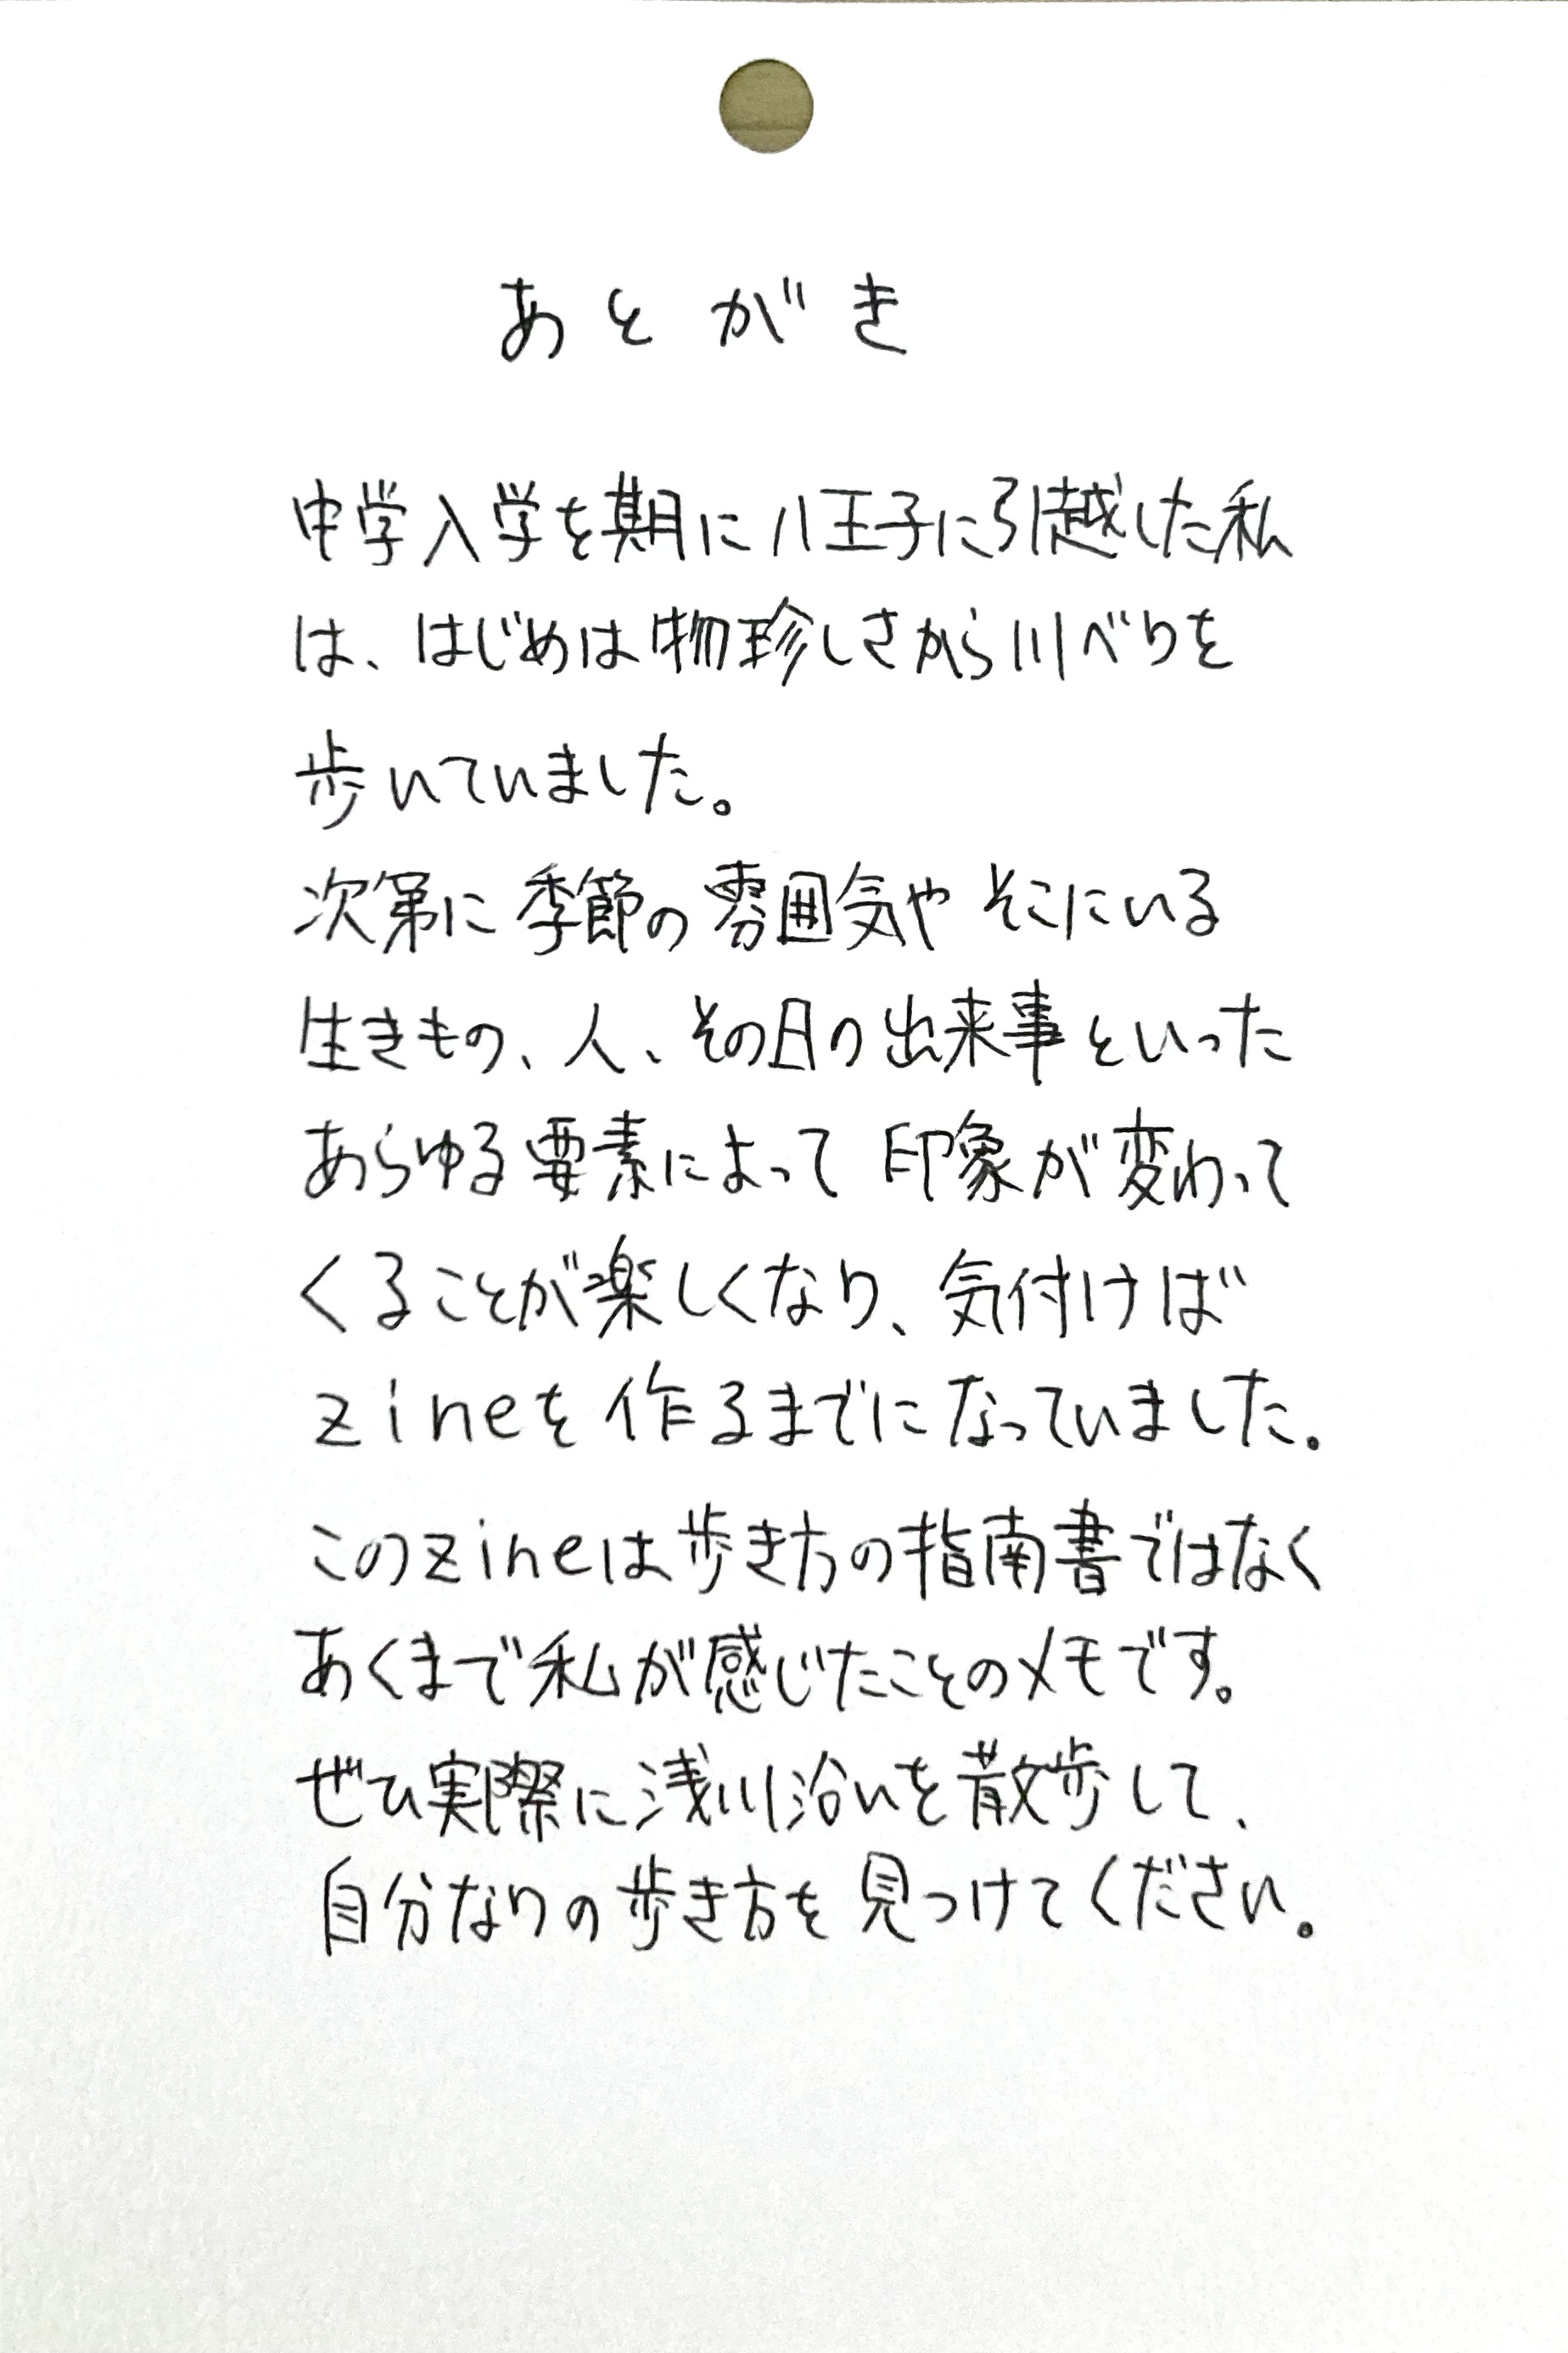 あとがき
中学入学を期に八王子に引越した私
は、はじめは物珍しさから川べりを
歩いていました。
次第に季節の雰囲気やそこにいる
生きもの、人、その日の出来事といった
あらゆる要素によって印象が変わって
くることが楽しくなり、気付けば
zineを作るまでになっていました。
このzineは歩き方の指南書ではなく
あくまで私が感じたことのメモです。
ぜひ実際に浅川沿いを散歩して、
自分なりの歩き方を見つけてください。